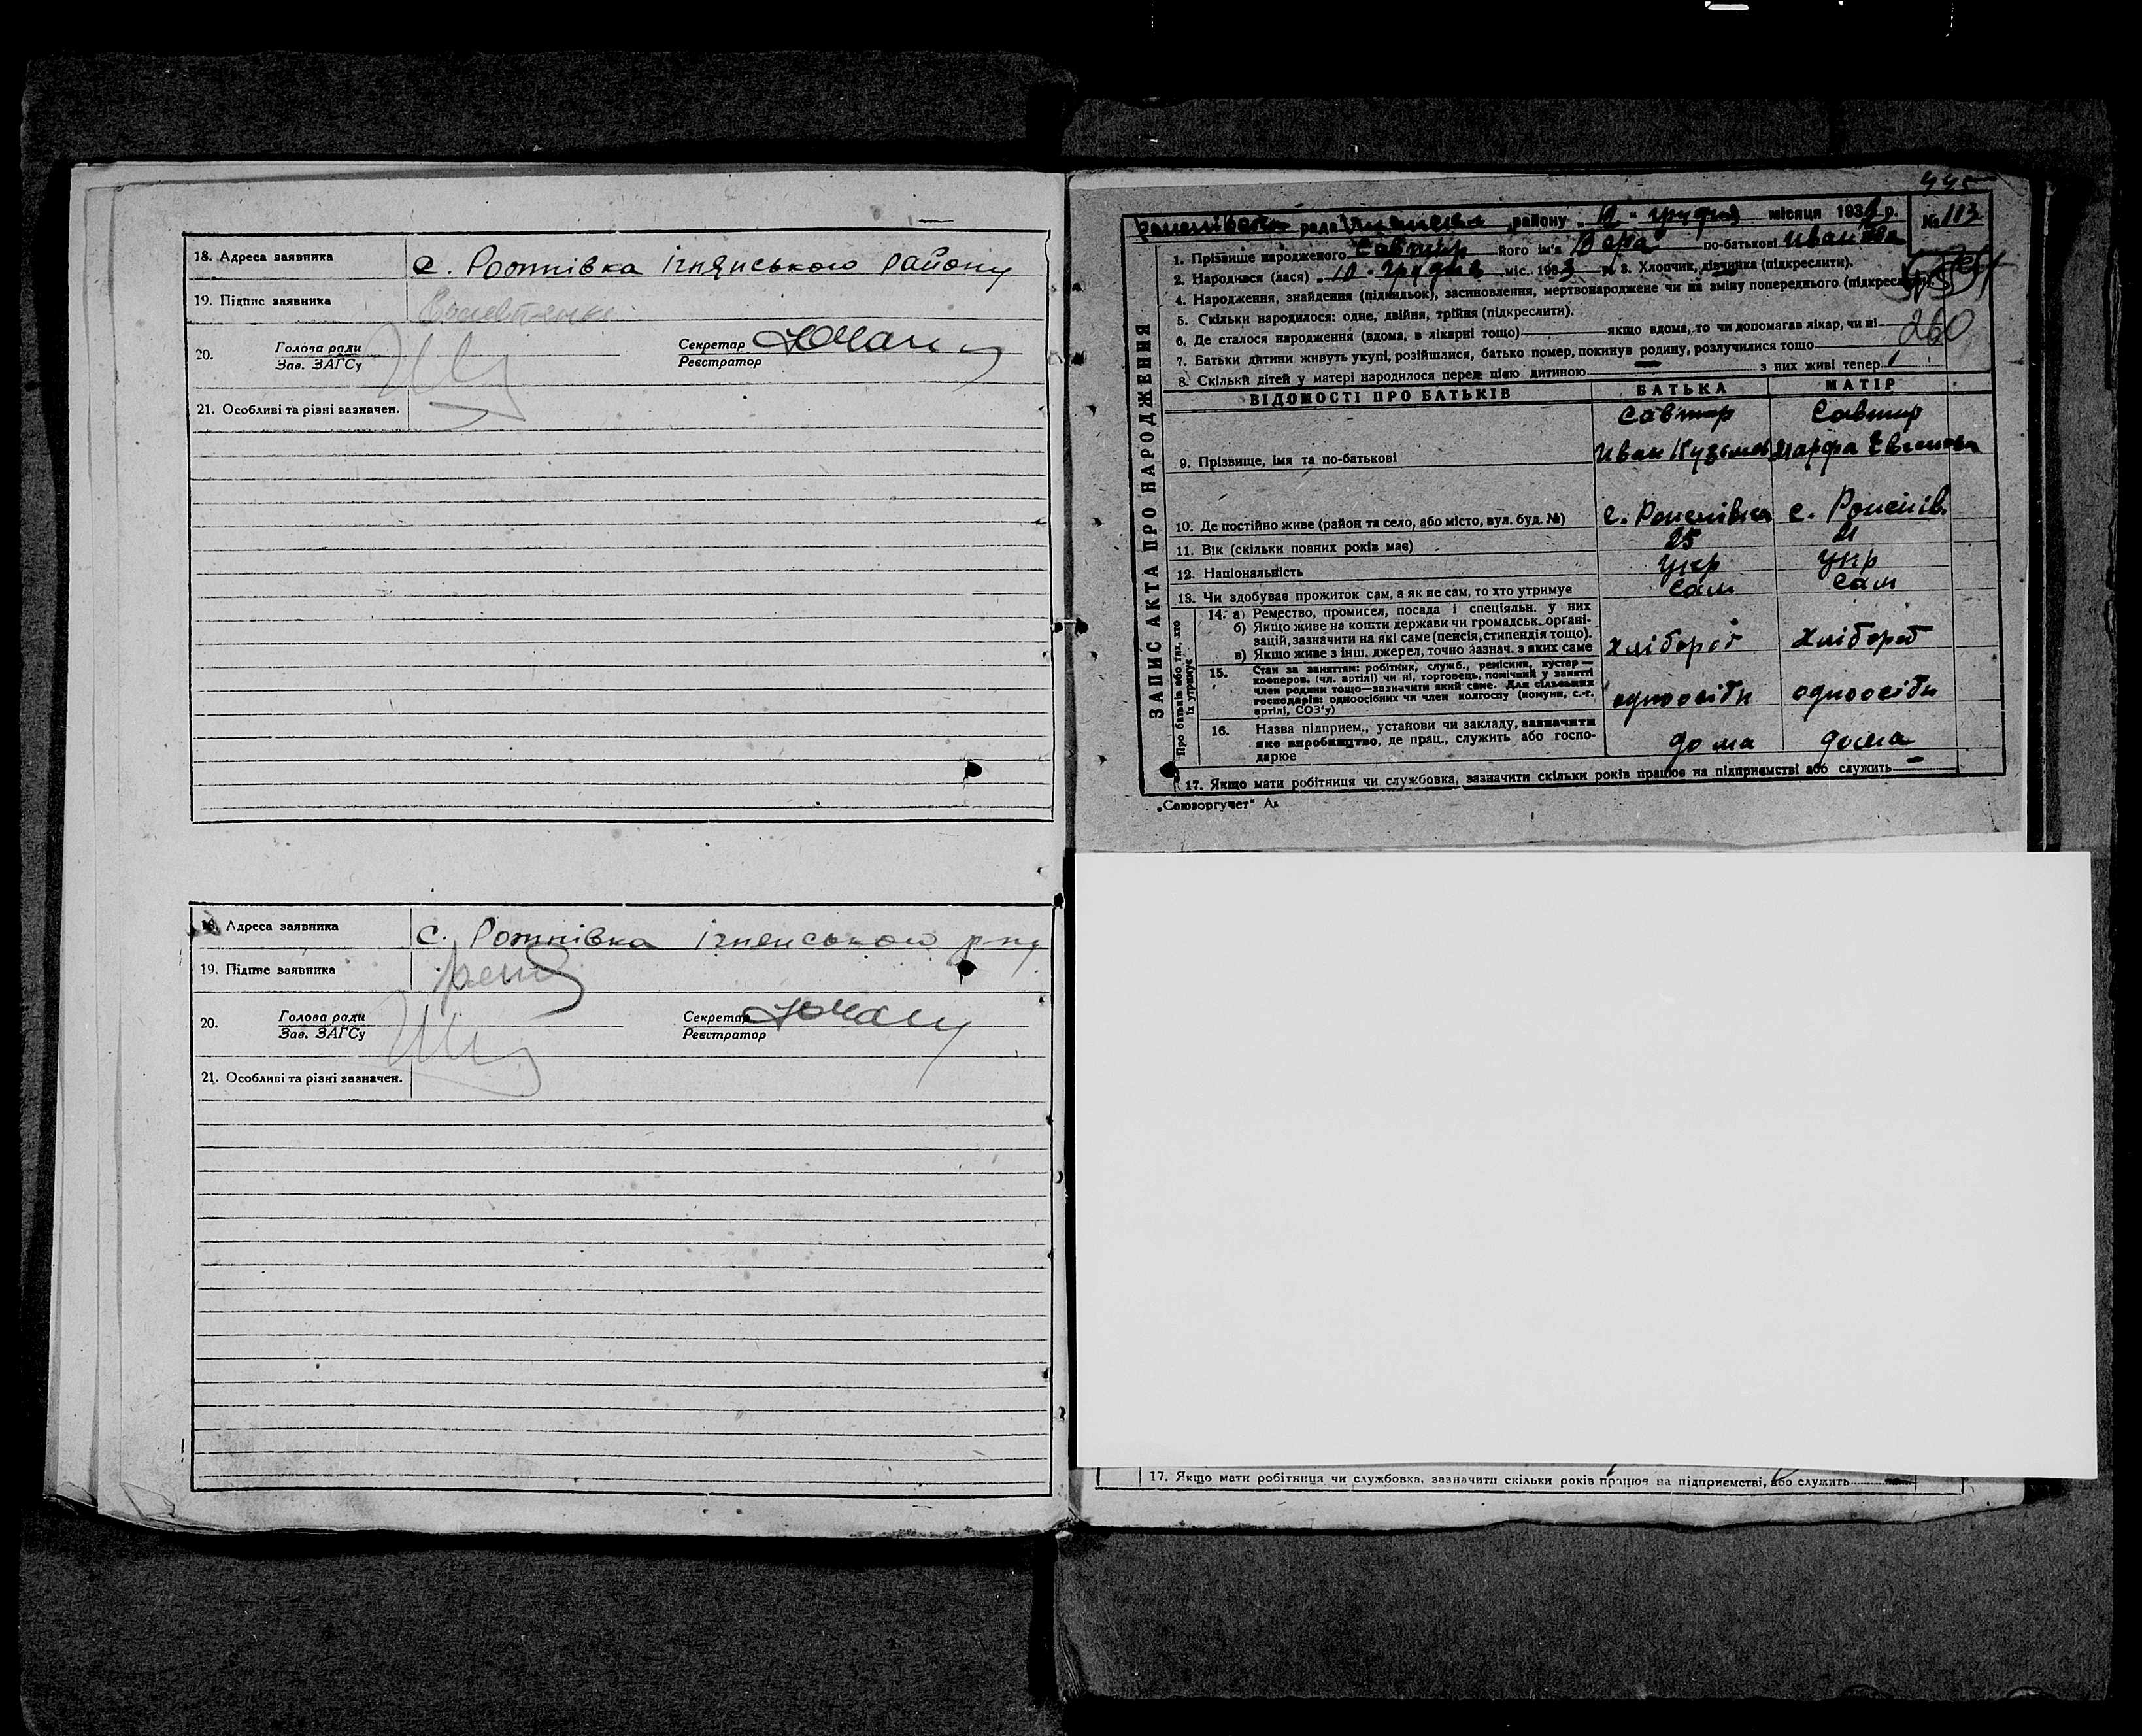 18. Адреса заявника с. Ромнівка ігнянського району
19. Підпис заявника
20. Голова ради Секретар
Зав. ЗАГСу Реєстратор
21. Особливі та різні зазначен.
Адреса заявника с. Ромнівка
19. Підпис заявника
20. Голова ради Секретар
Зав. ЗАГСу Реєстратор
21. Особливі та різні зазначен.
рада району „ " грудня місяця 193 р. № 113
1. Прізвище народженого його ім'я Вера по-батькові Иванівна
2. Народився (лася) „10 - грудня міс. 1933 р. 3. Хлопчик, дівчинка (підкреслити).
4. Народження, знайдення (підкидьок), засиновлення, мертвонароджене чи на зміну попереднього
5. Скільки народилося: одне, двійня, трійня (підкреслити).
6. Де сталося народження (вдома, в лікарні тощо) якщо вдома, то чи допомагав лікар, чи ні
260
7. Батьки дитини живуть укупі, розійшлися, батько помер, покинув родину, розлучилися тощо
8. Скільки дітей у матері народилося перед цією дитиною — з них живі тепер
ЗАПИС АКТА ПРО НАРОДЖЕННЯ
ВІДОМОСТІ ПРО БАТЬКІВ БАТЬКА МАТІР
9. Прізвище, імя та по-батькові Иван Марфа
10. Де постійно живе (район та село, або місто, вул. буд. №) с. с.
11. Вік (скільки повних років має) 25 21
12. Національність укр укр
13. Чи здобуває прожиток сам, а як не сам, то хто утримує сам сам
Про батьків або тих, хто їх утримує
14. а) Ремество, промисел, посада і спеціяльн. у них
б) Якщо живе на кошти держави чи громадськ. органі-
зацій, зазначити на які саме (пенсія, стипендія тощо).
в) Якщо живе з інш. джерел, точно зазнач. з яких саме хлібороб хлібороб
15. Стан за заняттям: робітник, служб., ремісник, кустар —
коопeров. (чл. артілі) чи ні, торговець, помічний у занятті
член родини тощо—зазначити який саме. Для сільських
господарів: одноосібних чи член колгоспу (комуни, с.-г.
артілі, СОЗ'у) одноосібн одноосібн
16. Назва підприєм., установи чи закладу, зазначити
яке виробництво, де прац., служить або госпо-
дарює дома дома
17. Якщо мати робітниця чи службовка, зазначити скільки років працює на підприємстві або служить —
„Союзоргучет"
17. Якщо мати робітниця чи службовка, зазначити скільки років працює на підприємстві, або служить